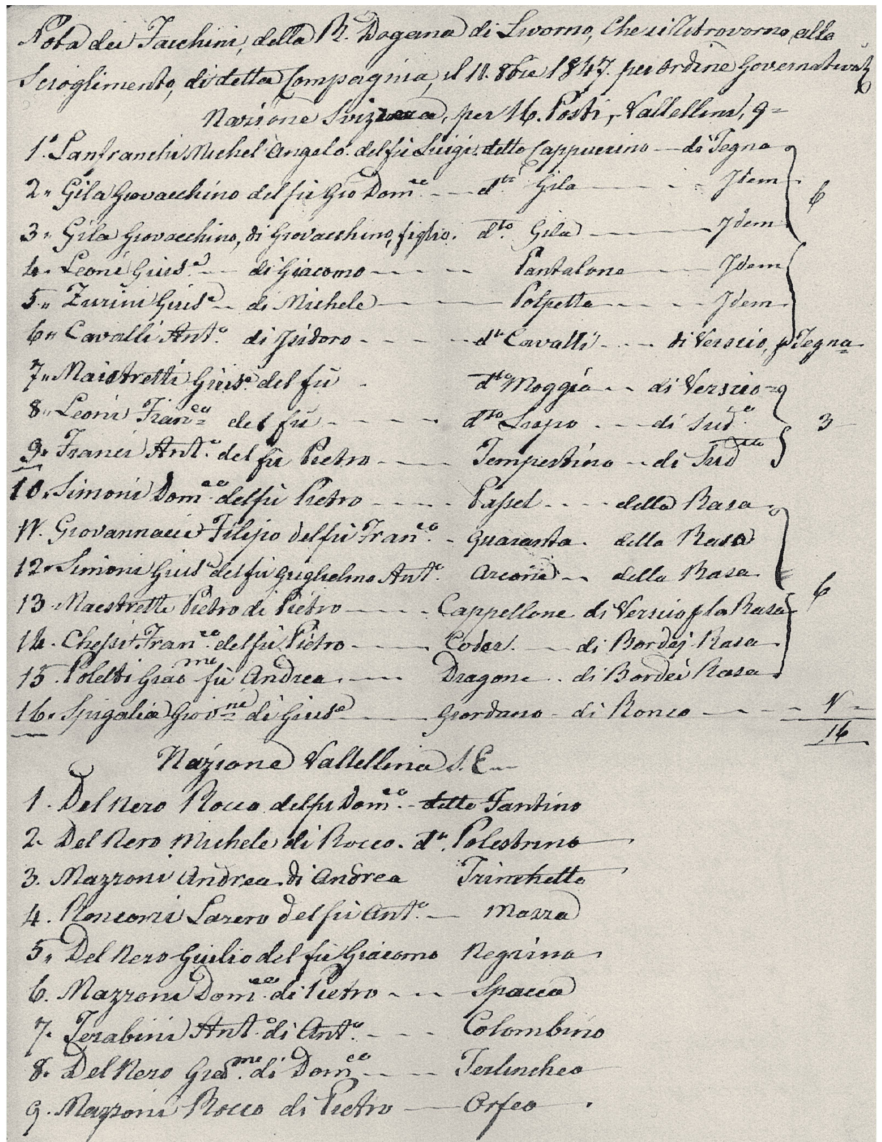 Nota dei Facchini, della R. Dogana di Livorno, che si ritrovorno, alla
Scioglimento, di detta Compagnia, il 11. 8bre 1847. per ordine Governativo
Nazione Svizzera, per 16. Posti, Valtellina, 9-
1º Lanfranchi Michel'Angelo del fù Luigi detto Cappuccino — di Tegna
2" Gila Giovacchino del fù Gio Domco — dto Gila — Idem
3" Gila Giovacchino, di Giovacchino, figlio. dto Gila — Idem
6
4" Leoni Gius.e di Giacomo — Pantalone — Idem
5" Zurini Gius.e di Michele — Polpetta — Idem
6" Cavalli Ant.o di Isidoro — dto Cavalli — di Verscio, p Tegna
7" Maistretti Gius.e del fù — dto Moggia — di Verscio
8" Leoni Franco del fù — dto Lupo — di Sud.o
3
9" Franci Ant.o del fù Pietro — Tempestino — di Sud
10. Simoni Domco del fù Pietro — Passel — della Rasa
11. Giovannacci Filipo del fù Fran.o - Quaranta della Rasa
12. Simoni Gius.e del fù Guglielmo Ant.o — della Rasa
13. Maestretti Pietro di Pietro — Cappellone di Verscio p la Rasa
6
14. Chessi Franco del fù Pietro — di Bordej Rasa
15. Poletti Giacme fù Andrea — Dragone di Bordei Rasa
16. Spigalia Giovni di Gius.e — Giordano - di Ronco — 1
16
Nazione Valtellina S. E.
1. Del Nero Rocco del fù Domco detto Fantino
2. Del Nero Michele di Rocco. dto Polestrino
3. Mazzoni Andrea di Andrea Trinchetto
4. Ronconi Lazero del fù Ant.o — Mazza
5" Del Nero Giulio del fù Giacomo Negrina
6. Mazzoni Domco di Pietro — Spacca
7. Terabini Ant.o di Ant.o — Colombino
8. Del Nero Giacme di Domco — Terlincheo
9. Mazzoni Rocco di Pietro — Orfeo